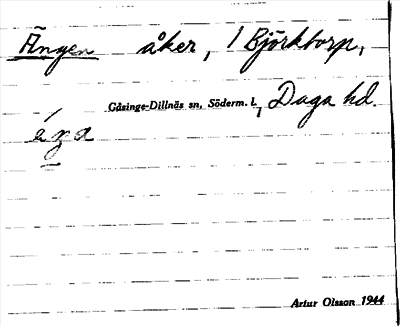 Ängen åker, 1 Björktorp,
Gåsinge-Dillnäs sn, Söderm. l., Daga hd.
Artur Olsson 1944